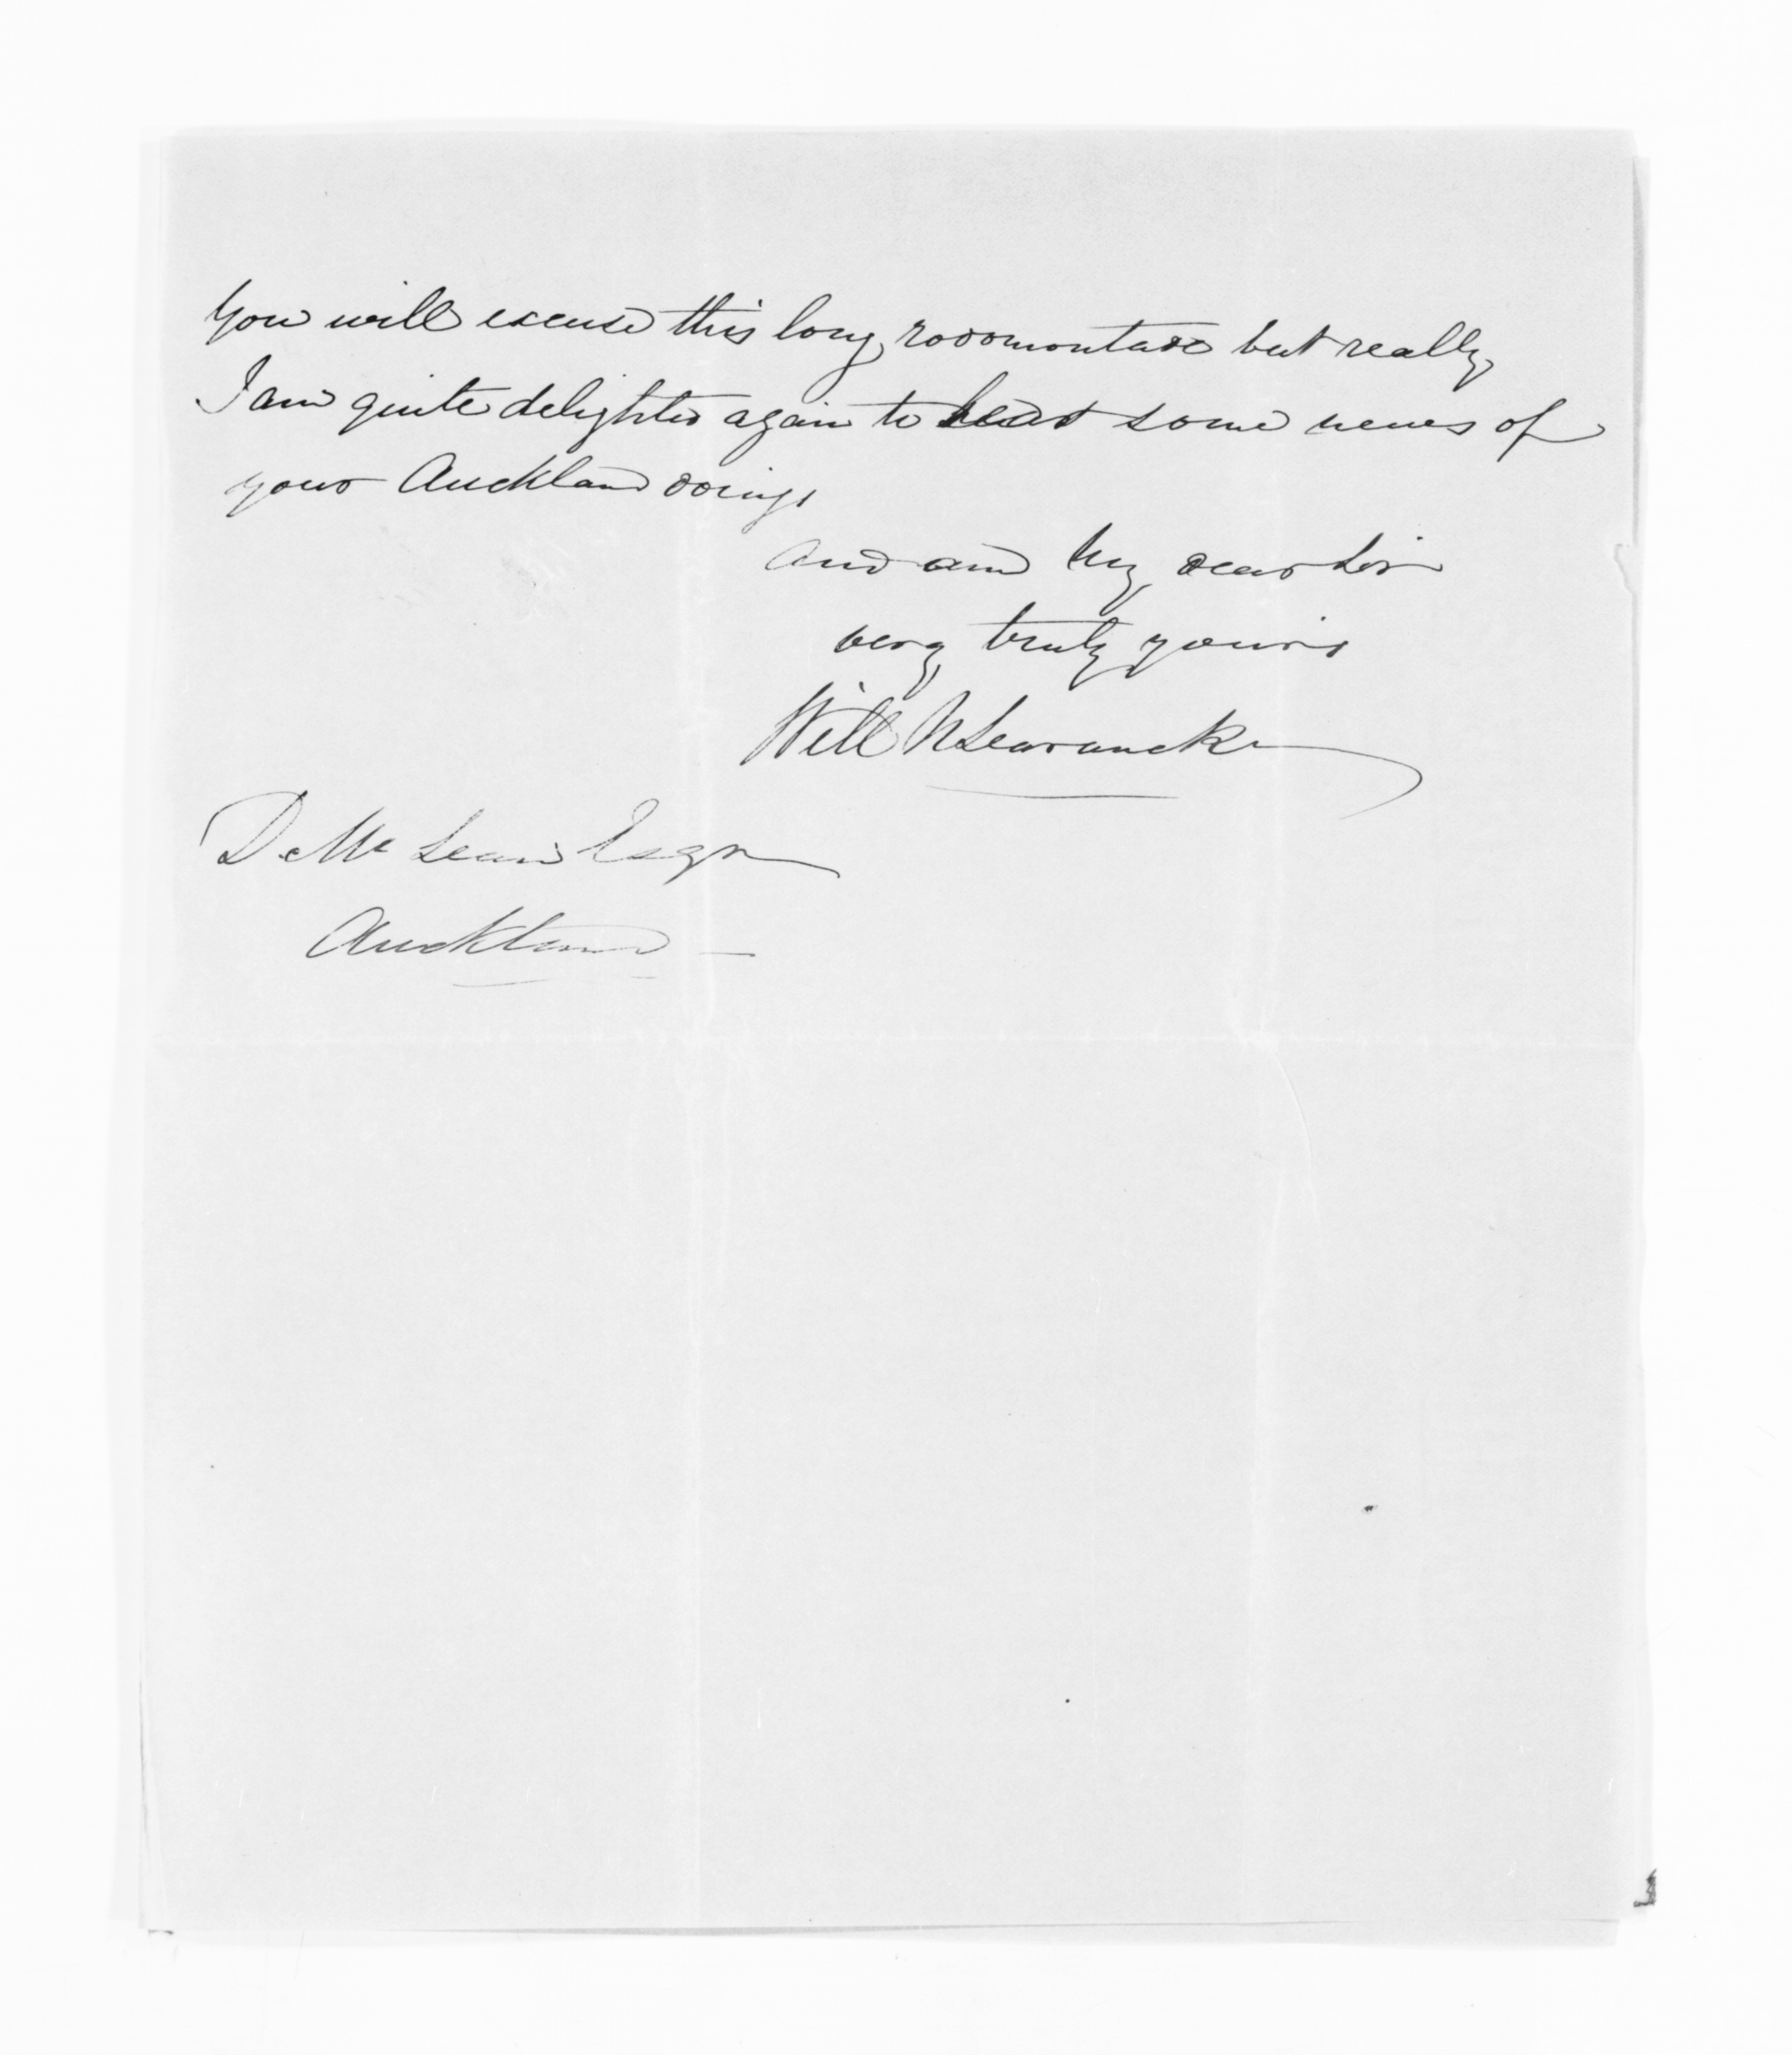 You will excuse this long rodomontade but really
I am quite delighted again to hear some news of
your Auckland doings
And am My dear Sir
very truly yours
Will N Searancke
D. McLean Esqr
Auckland —